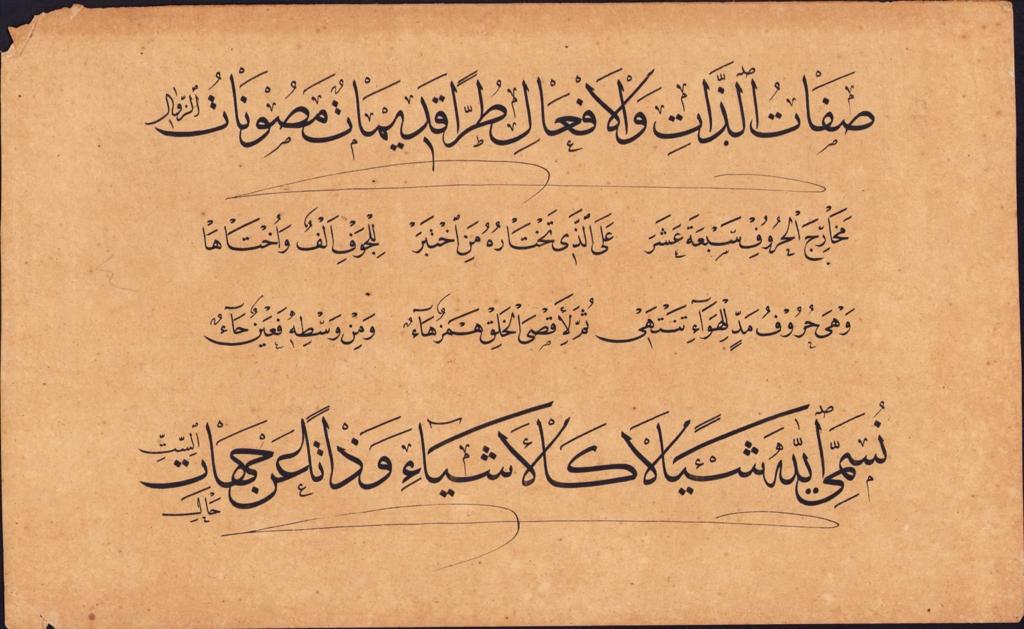 صِفَاتُ الذَّاتِ وَالْاَفْعَالِ طُرًّا قَدِيمَاتٌ مَصُونَاتُ الزَّوَالِ
مَخَارِجُ الْحُرُوفِ سَبْعَةَ عَشَرَ عَلَى الَّذِى تَخْتَارُهُ مَنِ اخْتَبَرَ لِلْجَوْفِ اَلِفٌ وَاُخْتَاهَا
وَهْىَ حُرُوفُ مَدٍّ لِلْهَوَآءِ تَنْتَهِى ثُمَّ لِأَقْصَى الْحَلْقِ هَمْزٌ هَآءٌ وَمِنْ وَسْطِهِ فَعَيْنٌ حَآءٌ
نُسَمِّى اللّٰهَ شَيْئًا لَا كَالْاَشْيَآءِ وَذَاتًا عَنْ جِهَاتِ السِّتِّ خَالِى